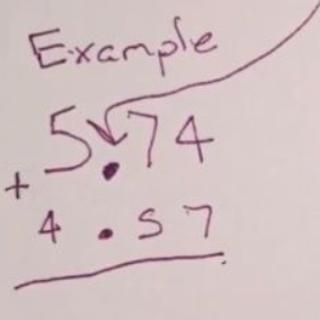 Example
5.74
+
4.57